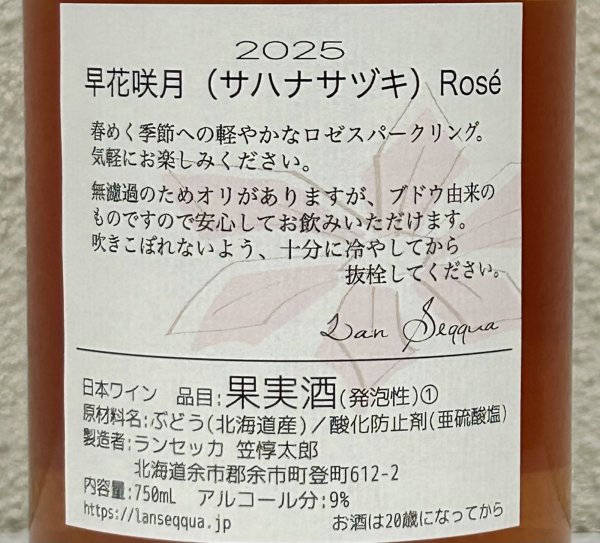 2025
早花咲月（サハナサヅキ）Rosé
春めく季節への軽やかなロゼスパークリング。
気軽にお楽しみください。
無濾過のためオリがありますが、ブドウ由来の
ものですので安心してお飲みいただけます。
吹きこぼれないよう、十分に冷やしてから
抜栓してください。
Lan Seqqua
日本ワイン 品目:果実酒(発泡性)①
原材料名:ぶどう(北海道産)／酸化防止剤(亜硫酸塩)
製造者:ランセッカ 笠惇太郎
北海道余市郡余市町登町612-2
内容量:750mL アルコール分:9%
https://lanseqqua.jp お酒は20歳になってから